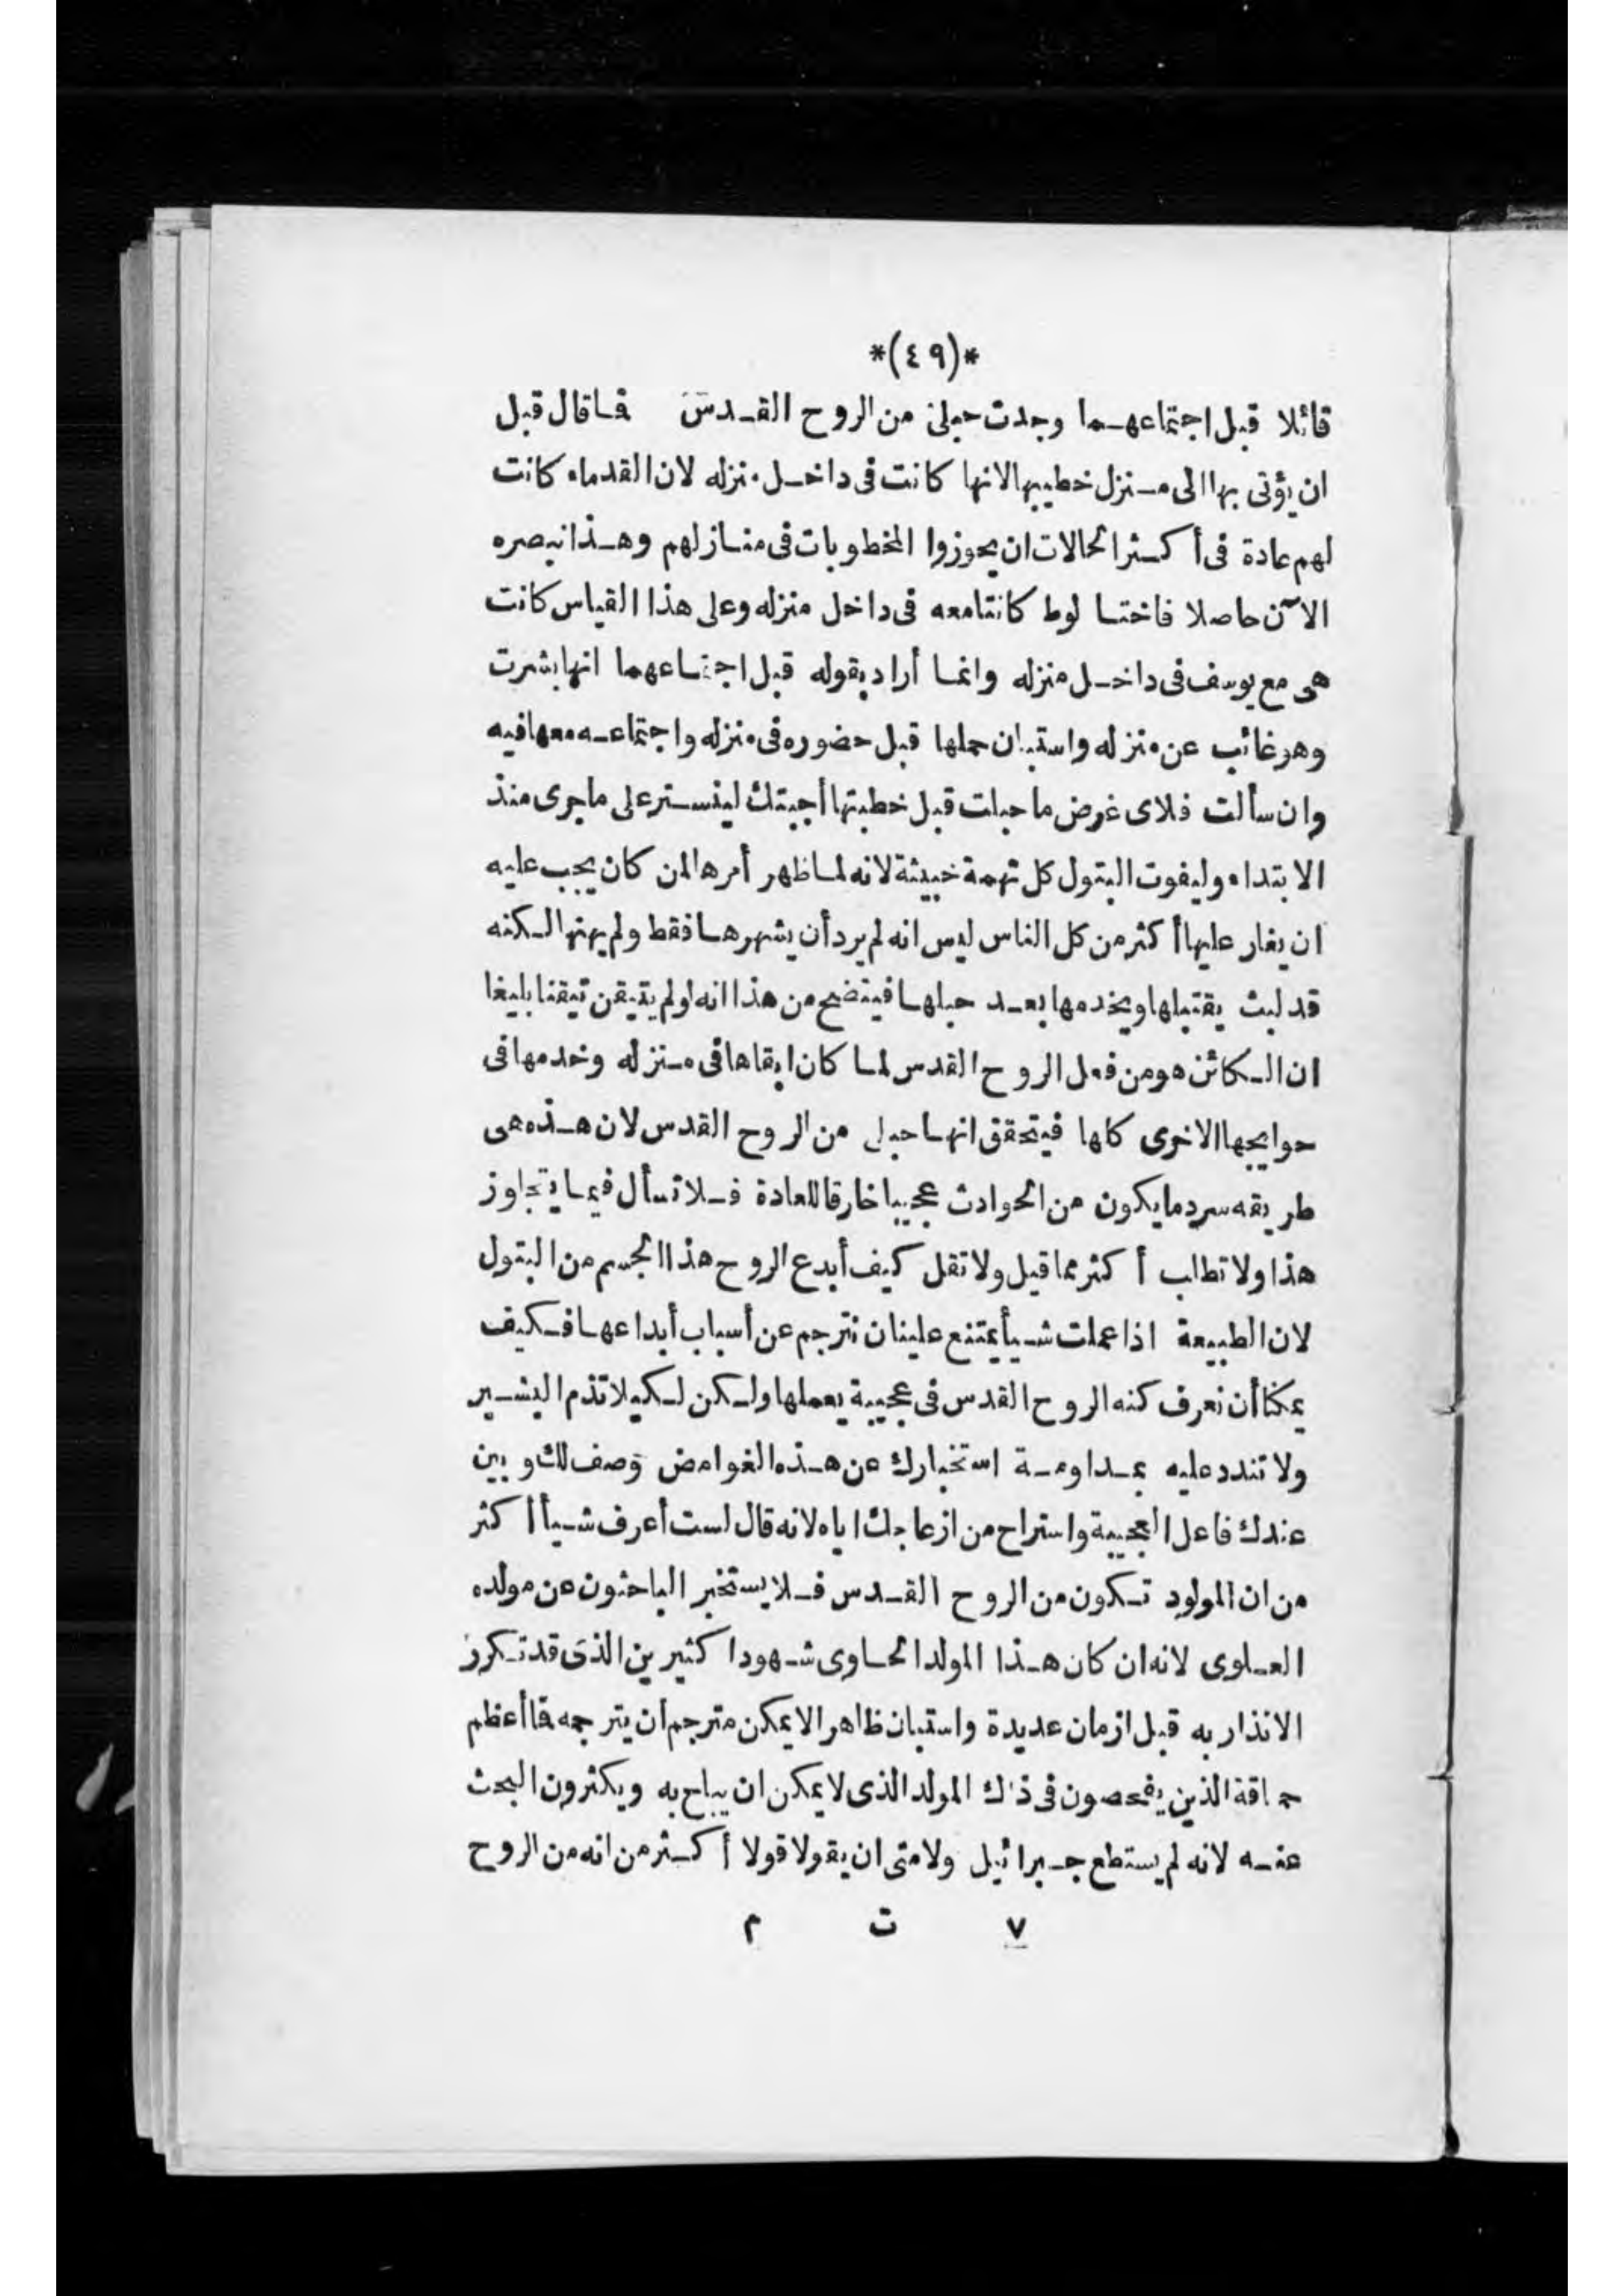 *(٤٩)*
قائلا قبل اجتماعهما وجدت حبلى من الروح القدس فما قال قبل
ان يؤتى بها الى منزل خطيبها لانها كانت فى داخل منزله لان القدماء كانت
لهم عادة فى أكثر الحالات ان يحوزوا المخطوبات فى منازلهم وهذا نبصره
الآن حاصلا فاختنا لوط كانتا معه فى داخل منزله وعلى هذا القياس كانت
هى مع يوسف فى داخل منزله وانما أراد بقوله قبل اجتماعهما انها بشرت
وهو غائب عن منزله واستبان حملها قبل حضوره فى منزله واجتماعه معها فيه
وان سألت فلاى غرض ما حبلت قبل خطبتها أجبتك لينستر على ما جرى منذ
الابتداء وليفوت البتول كل تهمة خبيثة لانه لما ظهر أمرها لمن كان يجب عليه
ان يغار عليها أكثر من كل الناس ليس انه لم يرد أن يشهرها فقط ولم يهنها لكنه
قد لبث يقتبلها ويخدمها بعد حبلها فيتضح من هذا انه لو لم يتيقن تيقنا بليغا
ان الكائن هو من فعل الروح القدس لما كان ابقاها فى منزله وخدمها فى
حوايجها الاخرى كلها فيتحقق انها حبلى من الروح القدس لان هذه هى
طريقه سرد ما يكون من الحوادث عجيبا خارقا للعادة فلا تسأل فيما يتجاوز
هذا ولا تطالب أكثر مما قيل ولا تقل كيف أبدع الروح هذا الجسم من البتول
لان الطبيعة اذا عملت شيأ يمتنع علينا ان نترجم عن أسباب أبداعها فكيف
يمكنا أن نعرف كنه الروح القدس فى عجيبة يعملها ولكن لكيلا تذم البشير
ولا تندد عليه بمداومة استخبارك عن هذه الغوامض وصف لك وبين
عندك فاعل العجيبة واستراح من ازعاجك اياه لانه قال لست أعرف شيأ أكثر
من ان المولود تكون من الروح القدس فلا يستخبر الباحثون عن مولده
العلوى لانه ان كان هذا المولد الحاوى شهودا كثيرين الذى قد تكرر
الانذار به قبل ازمان عديدة واستبان ظاهرا لا يمكن مترجم أن يترجمه فما أعظم
حماقة الذين يفحصون فى ذلك المولد الذى لا يمكن ان يباح به ويكثرون البحث
عنه لانه لم يستطع جبرائيل ولا متى ان يقولا قولا أكثر من انه من الروح
٧ ت م